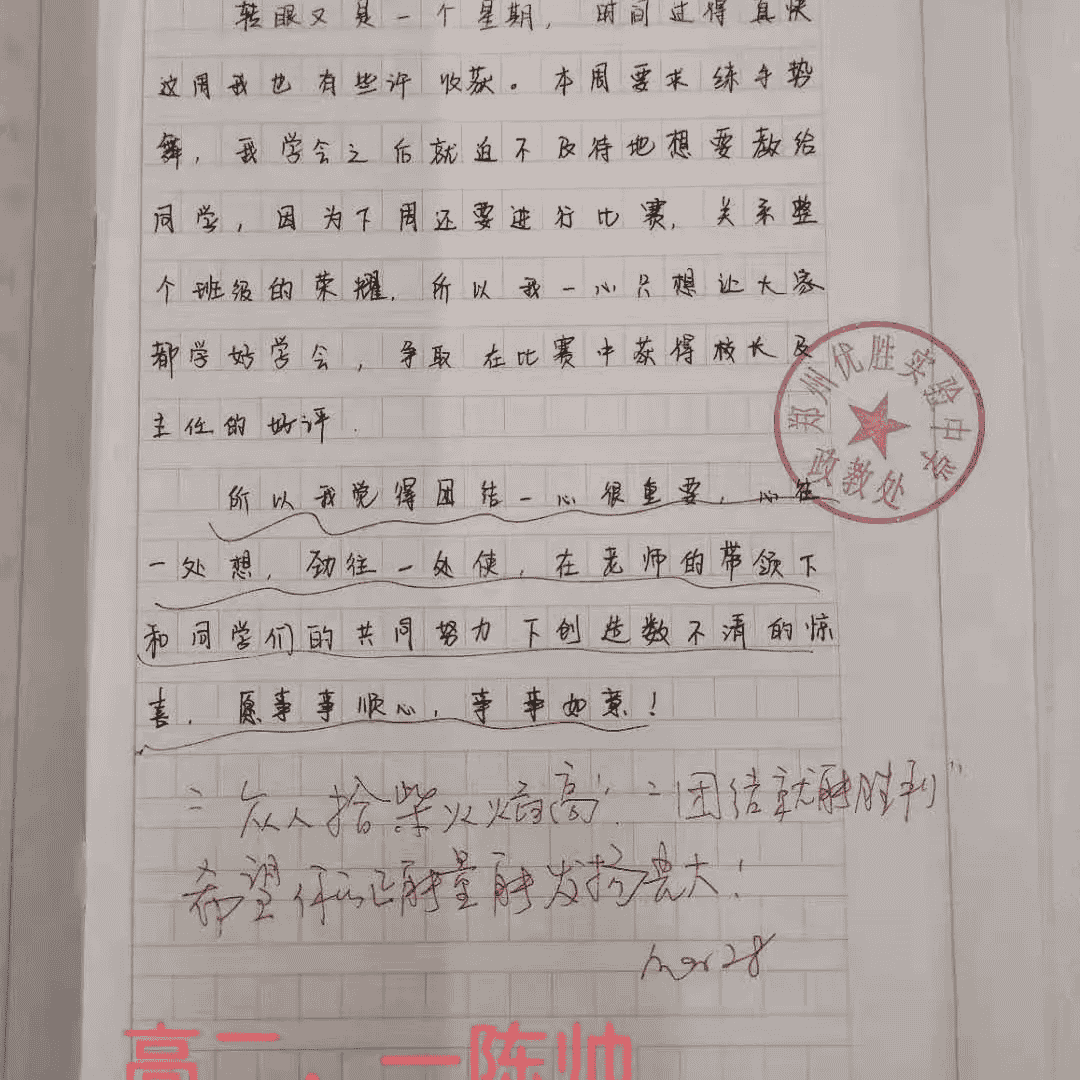 转眼又是一个星期，时间过得真快
这周我也有些许收获。本周要求练手势
舞，我学会之后就迫不及待地想要教给
同学，因为下周还要进行比赛，关系整
个班级的荣耀，所以我一心只想让大家
都学好学会，争取在比赛中获得校长及
主任的好评.
郑州优胜实验中学
政教处
所以我觉得团结一心很重要，心往
一处想，劲往一处使，在老师的带领下
和同学们的共同努力下创造数不清的惊
喜，愿事事顺心，事事如意！
众人拾柴火焰高！团结就能胜利"
希望你的正能量能发扬光大！
28
高二．一陈帅